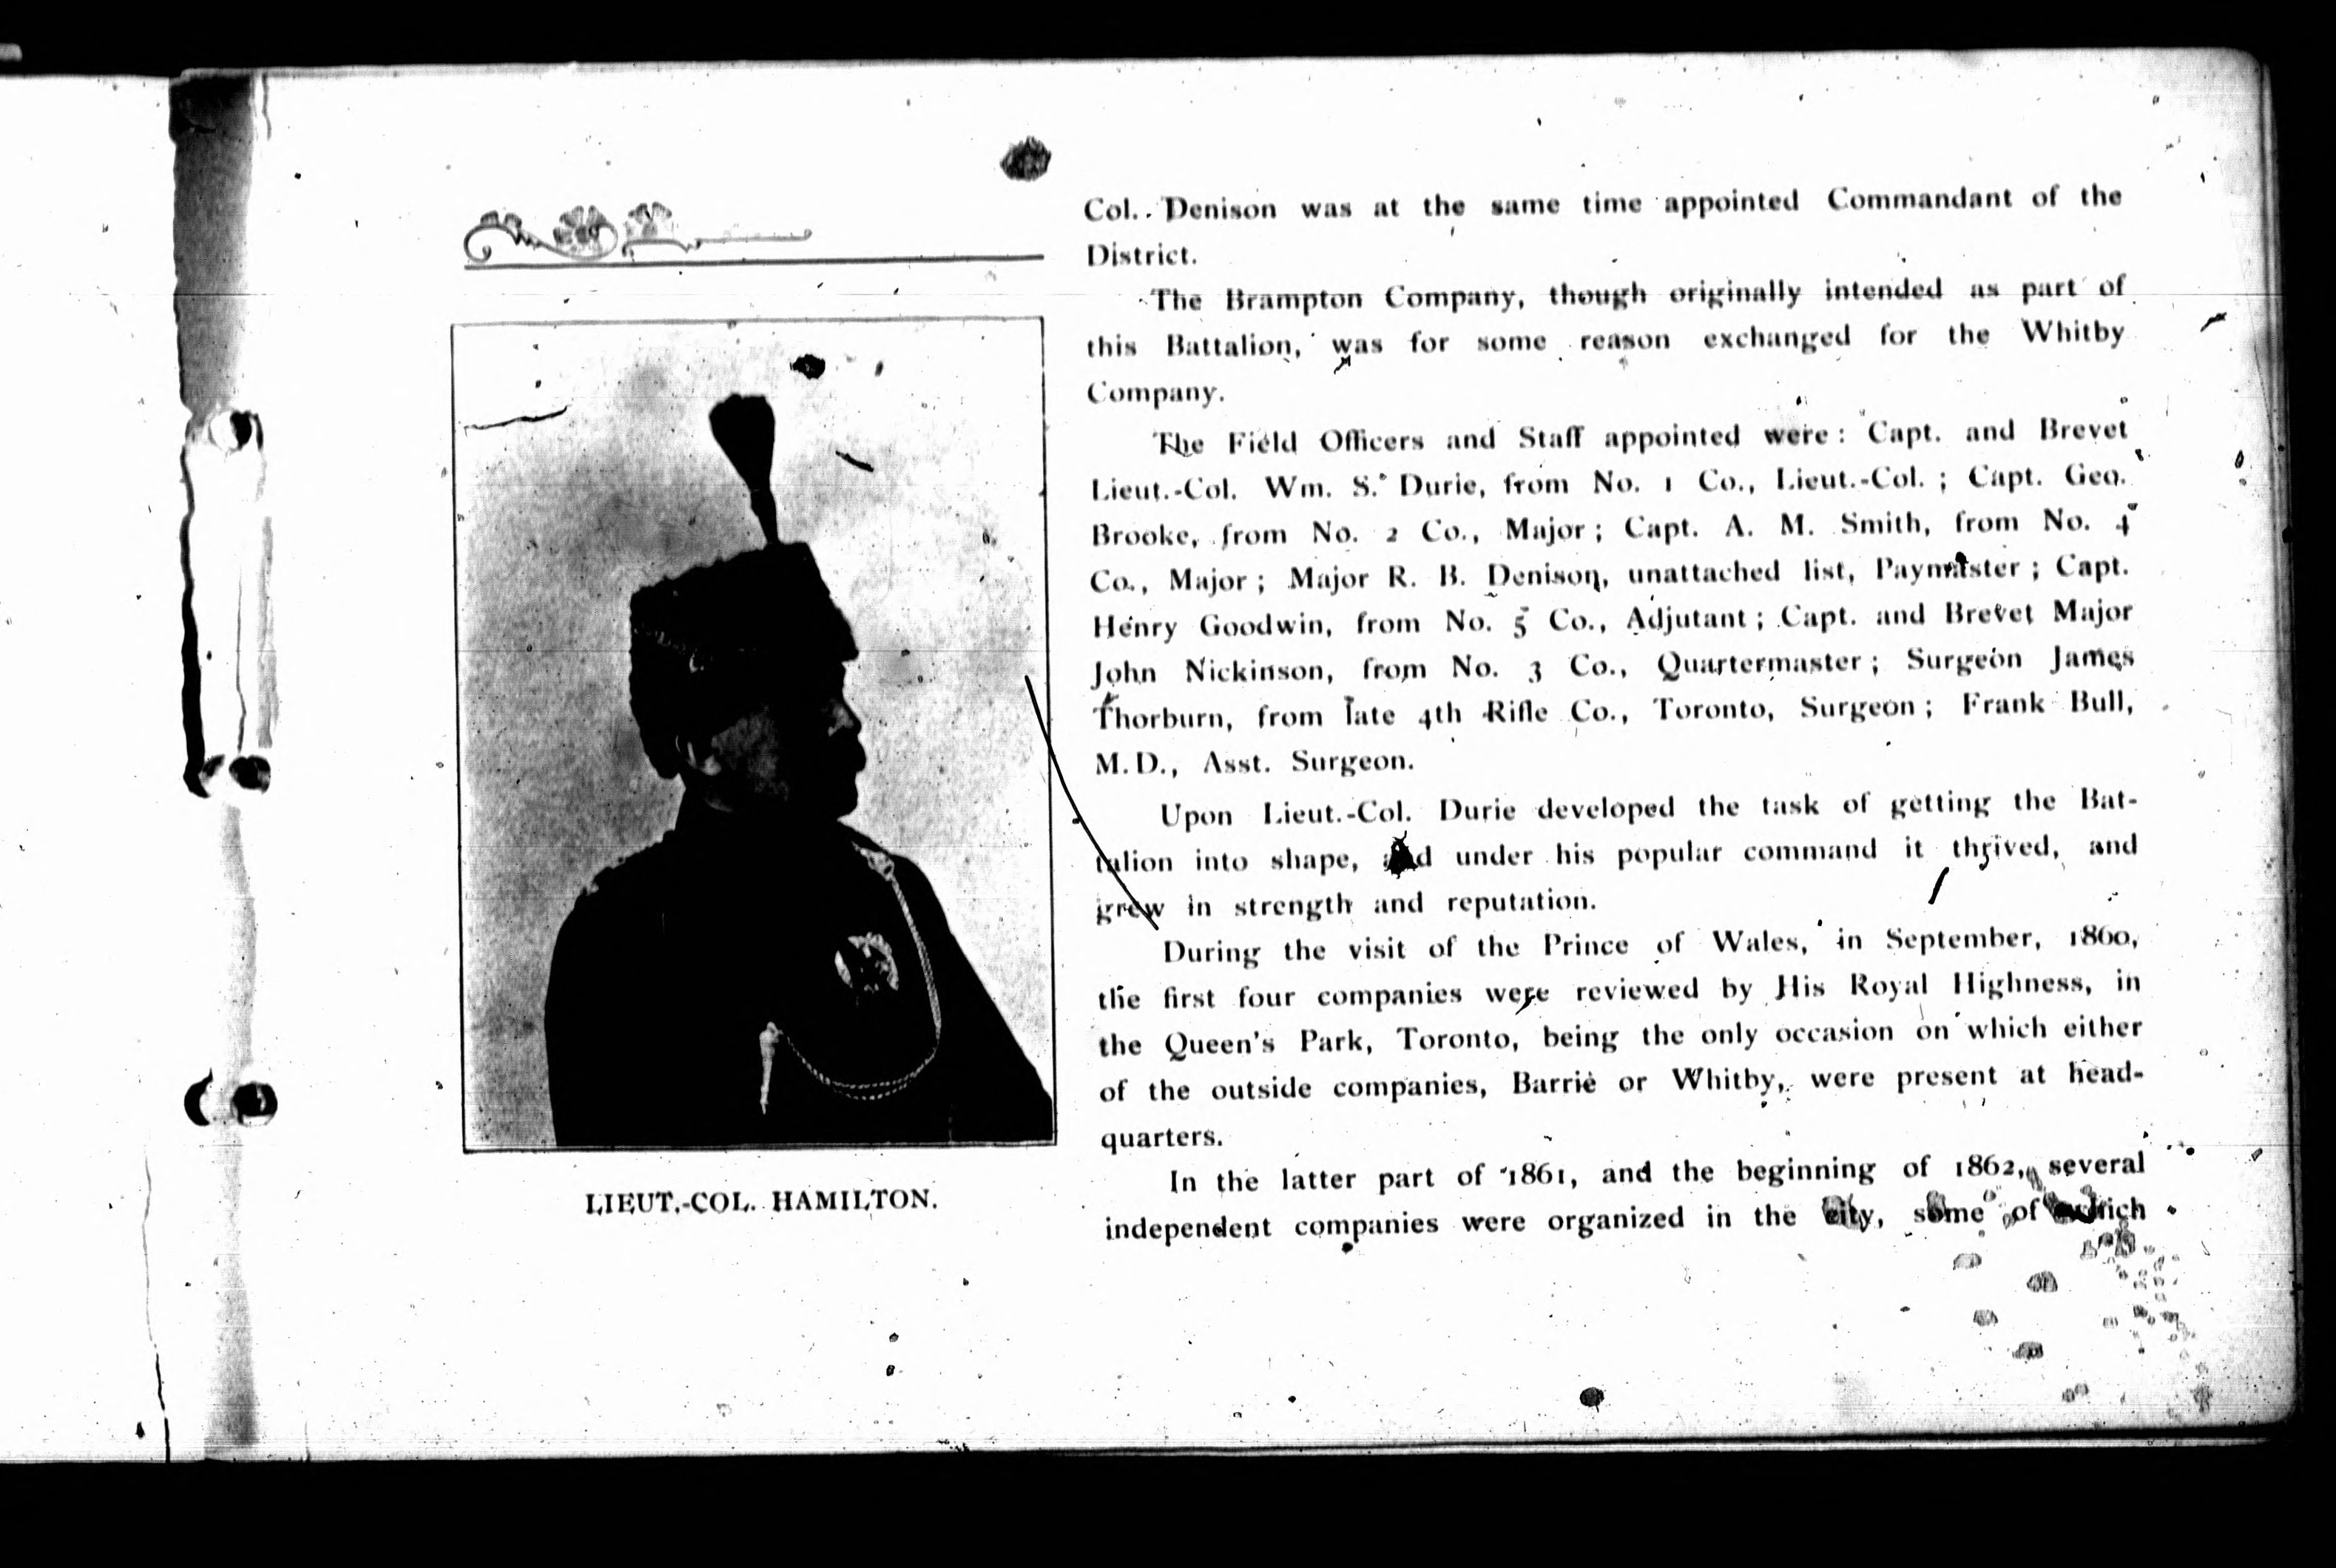 LIEUT.-COL. HAMILTON.
Col. Denison was at the same time appointed Commandant of the
District.
The Brampton Company, though originally intended as part of
this Battalion, was for some reason exchanged for the Whitby
Company.
The Field Officers and Staff appointed were: Capt. and Brevet
Lieut.-Col. Wm. S. Durie, from No. 1 Co., Lieut.-Col.; Capt. Geo.
Brooke, from No. 2 Co., Major; Capt. A. M. Smith, from No. 4
Co., Major; Major R. B. Denison, unattached list, Paymaster; Capt.
Henry Goodwin, from No. 5 Co., Adjutant; Capt. and Brevet Major
John Nickinson, from No. 3 Co., Quartermaster; Surgeon James
Thorburn, from late 4th Rifle Co., Toronto, Surgeon; Frank Bull,
M.D., Asst. Surgeon.
Upon Lieut.-Col. Durie developed the task of getting the Bat-
talion into shape, and under his popular command it thrived, and
grew in strength and reputation.
During the visit of the Prince of Wales, in September, 1860,
the first four companies were reviewed by His Royal Highness, in
the Queen's Park, Toronto, being the only occasion on which either
of the outside companies, Barrie or Whitby, were present at head-
quarters.
In the latter part of 1861, and the beginning of 1862, several
independent companies were organized in the city, some of which